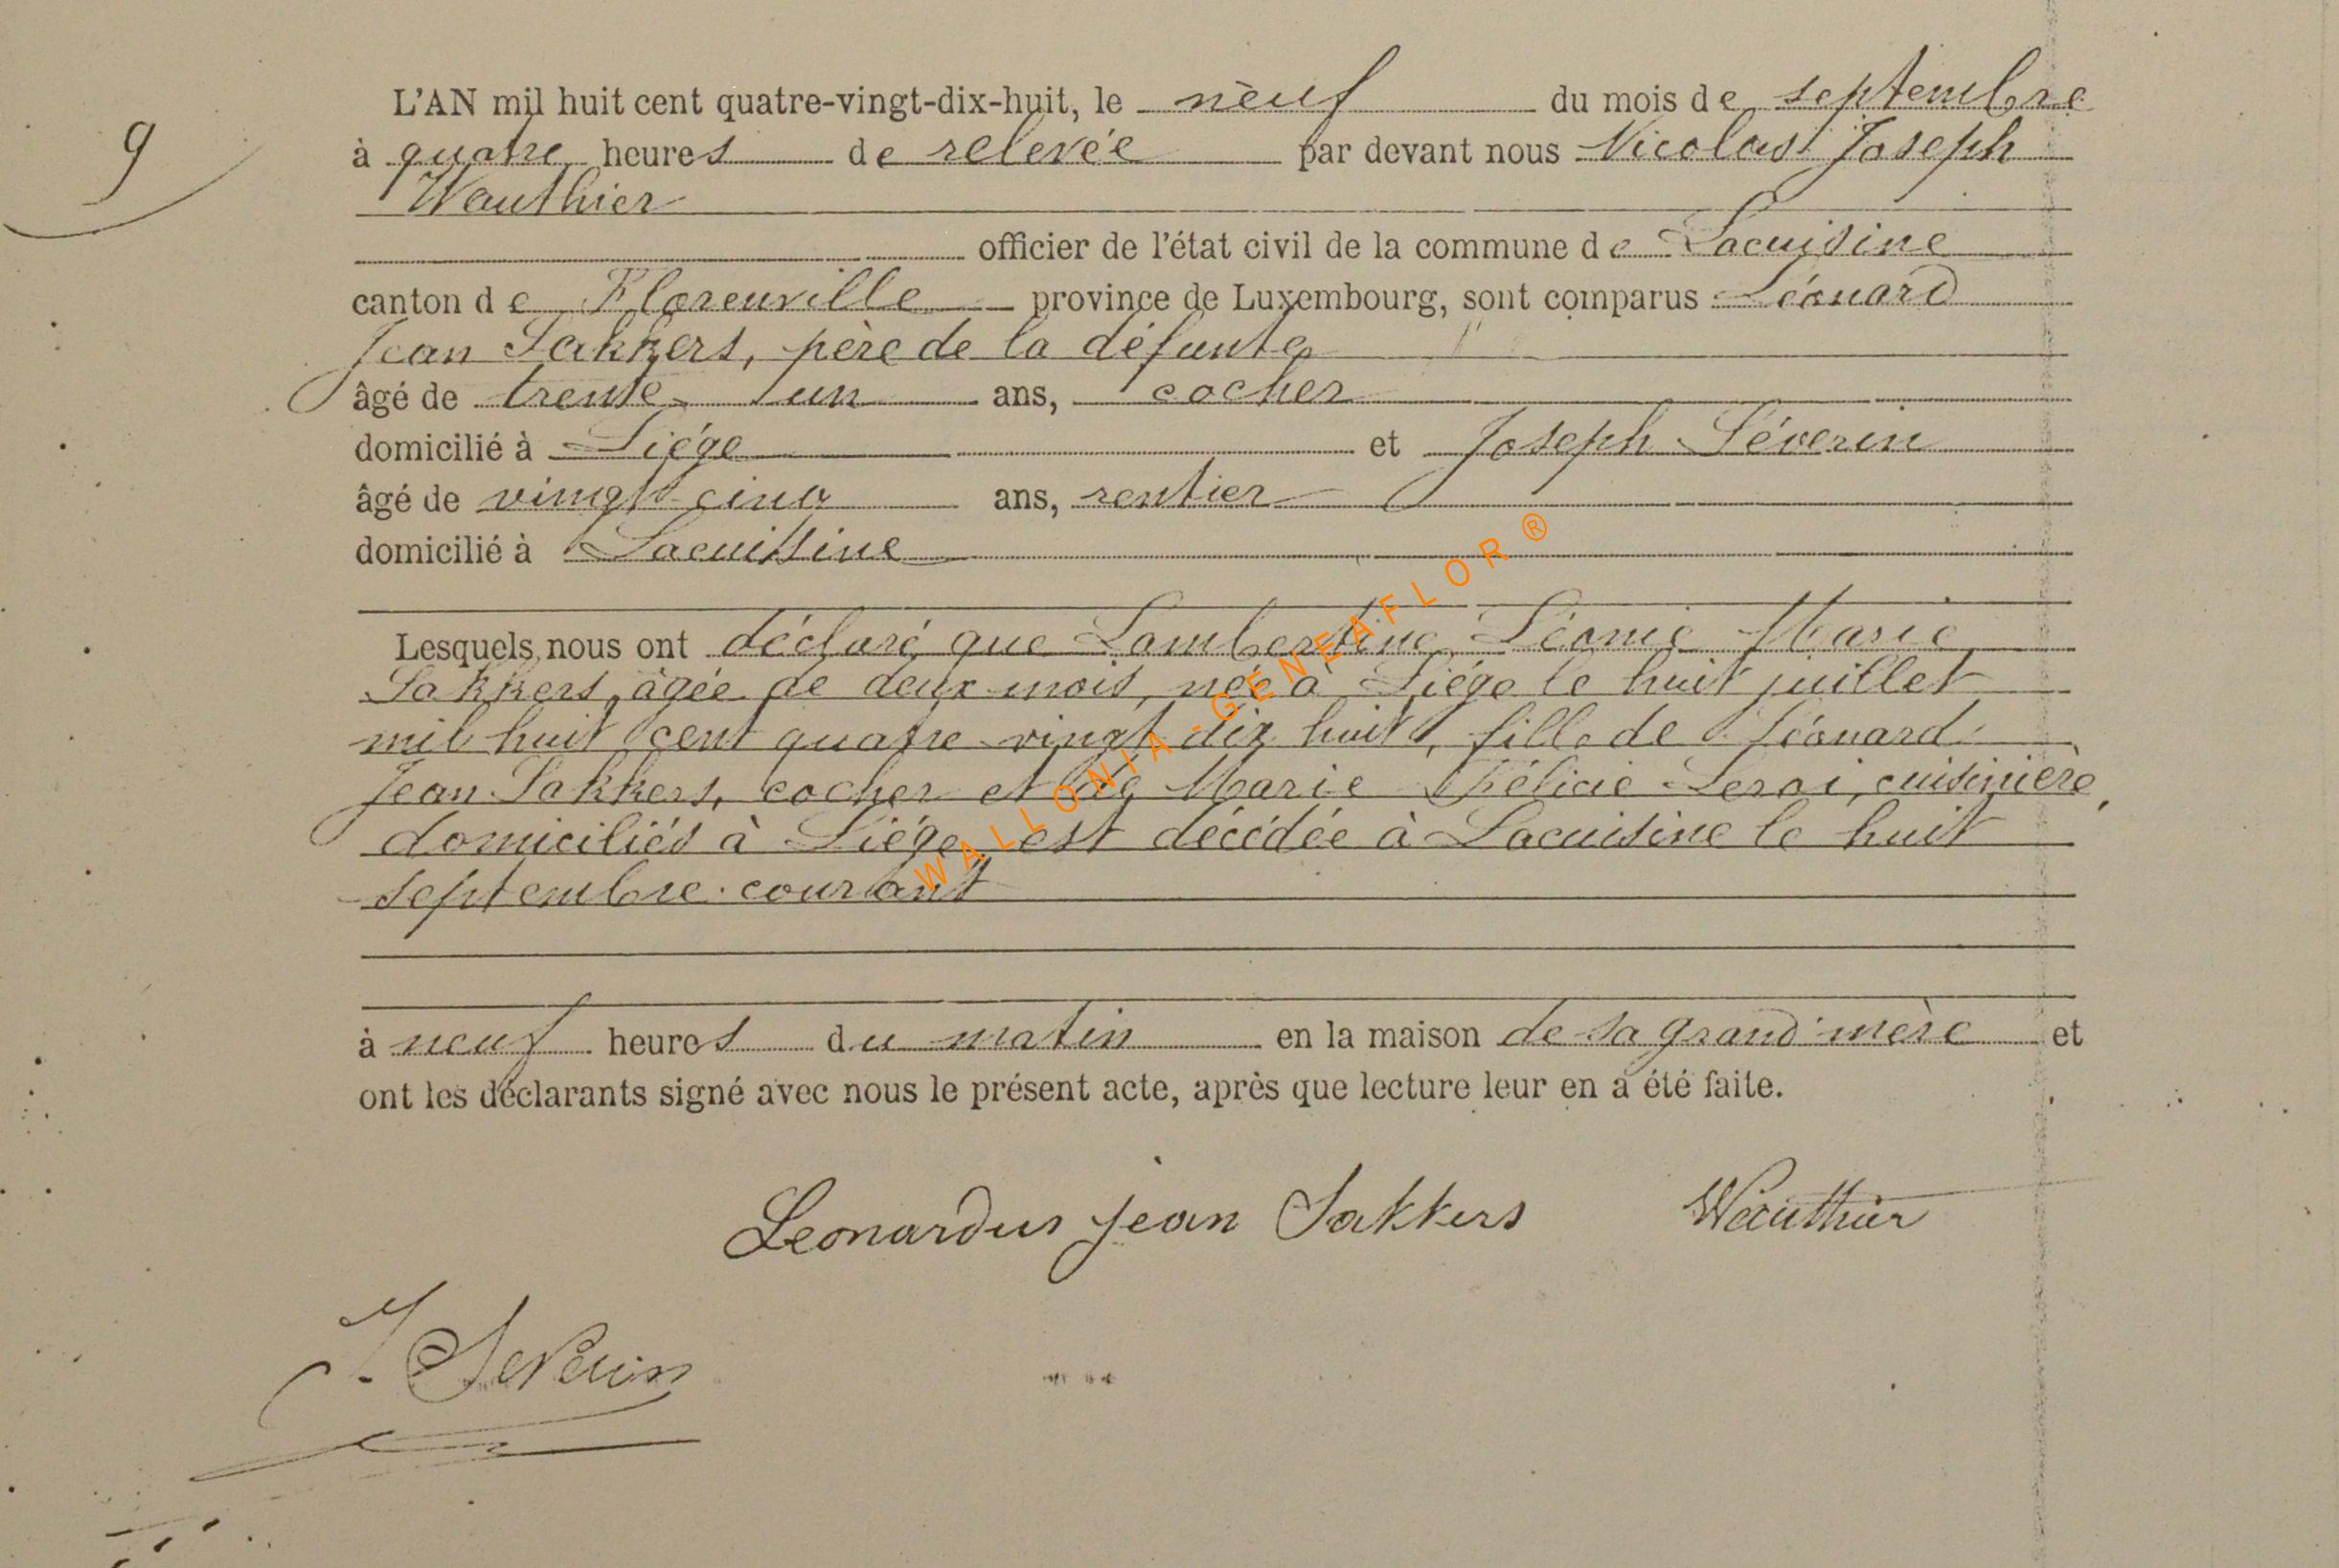 L'AN mil huit cent quatre-vingt-dix-huit, le neuf du mois de septembre
9
à quatre heures de relevée par devant nous Nicolas Joseph
Wauthier
officier de l'état civil de la commune de Lacuisine
canton de Florenville province de Luxembourg, sont comparus Léonard
Jean Sakkers, père de la défunte
âgé de trente un ans, cocher
domicilié à Liége et Joseph Séverin
âgé de vingt cinq ans, rentier
domicilié à Lacuisine
Lesquels nous ont déclaré que Lambertine Léonie Marie
Sakkers, âgée de deux mois, née à Liége le huit juillet
mil huit cent quatre vingt dix huit, fille de Léonard
Jean Sakkers, cocher et de Marie Félicie Leroi, cuisinière,
domiciliés à Liége est décédée à Lacuisine le huit
septembre courant
à neuf heures du matin en la maison de sa grand'mère et
ont les déclarants signé avec nous le présent acte, après que lecture leur en a été faite.
Leonardus jean Sakkers Wauthier
J. Severin
WALLONIA-GENEAFLOR ®